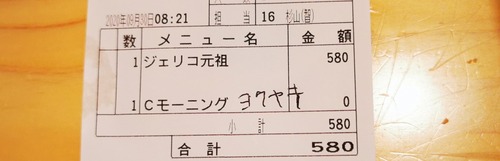 2020年09月30日08:21 担当 16 杉山(智)
数 メニュー名 金額
1 ジェリコ元祖 580
1 Cモーニング ヨクヤキ 0
小計 580
合計 580